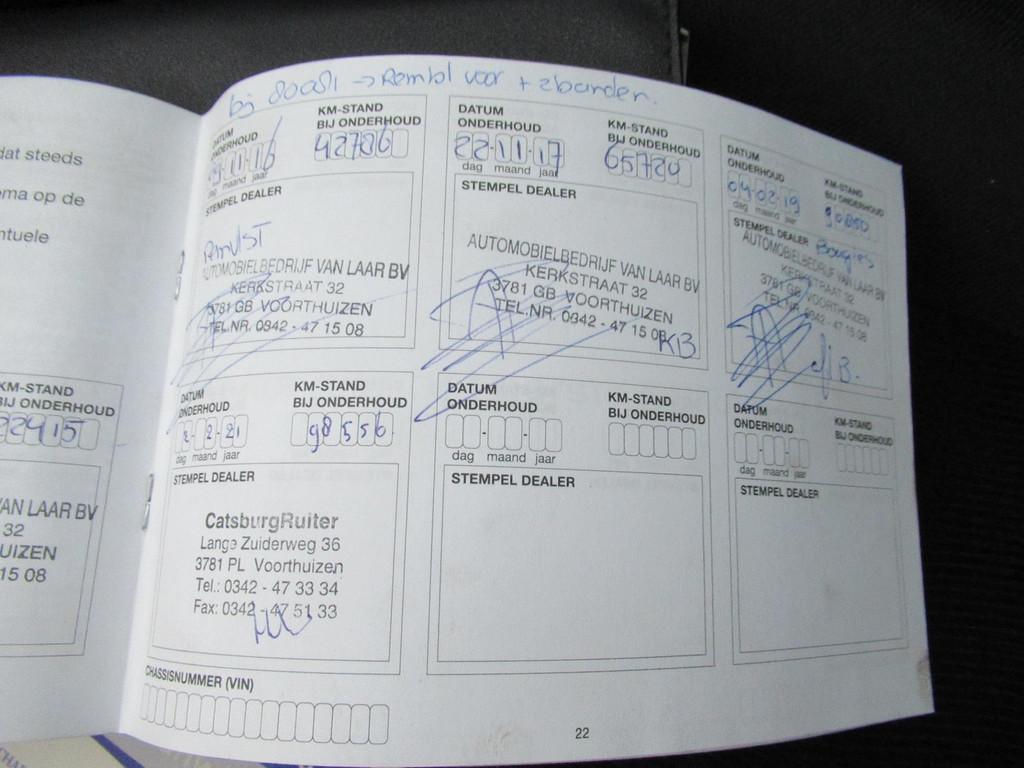 dat steeds
ema op de
ntuele
KM-STAND
BIJ ONDERHOUD
22415
VAN LAAR BV
32
UIZEN
15 08
bij 80081 → Rembl voor + 2banden.
DATUM
ONDERHOUD
KM-STAND
BIJ ONDERHOUD
11 16
42786
dag maand jaar
STEMPEL DEALER
AUTOMOBIELBEDRIJF VAN LAAR BV
KERKSTRAAT 32
3781 GB VOORTHUIZEN
TEL.NR. 0342 - 47 15 08
DATUM
ONDERHOUD
KM-STAND
BIJ ONDERHOUD
22-11-17
65720
dag maand jaar
STEMPEL DEALER
AUTOMOBIELBEDRIJF VAN LAAR BV
KERKSTRAAT 32
3781 GB VOORTHUIZEN
TEL.NR. 0342 - 47 15 08
KB
DATUM
ONDERHOUD
KM-STAND
BIJ ONDERHOUD
04 02 19
90850
dag maand jaar
STEMPEL DEALER
Bougies
AUTOMOBIELBEDRIJF VAN LAAR BV
KERKSTRAAT 32
3781 GB VOORTHUIZEN
TEL.NR. 0342 - 47 15 08
DATUM
ONDERHOUD
KM-STAND
BIJ ONDERHOUD
2-2-21
98556
dag maand jaar
STEMPEL DEALER
CatsburgRuiter
Lange Zuiderweg 36
3781 PL Voorthuizen
Tel.: 0342 - 47 33 34
Fax: 0342 - 47 51 33
DATUM
ONDERHOUD
KM-STAND
BIJ ONDERHOUD
dag maand jaar
STEMPEL DEALER
DATUM
ONDERHOUD
KM-STAND
BIJ ONDERHOUD
dag maand jaar
STEMPEL DEALER
CHASSISNUMMER (VIN)
22